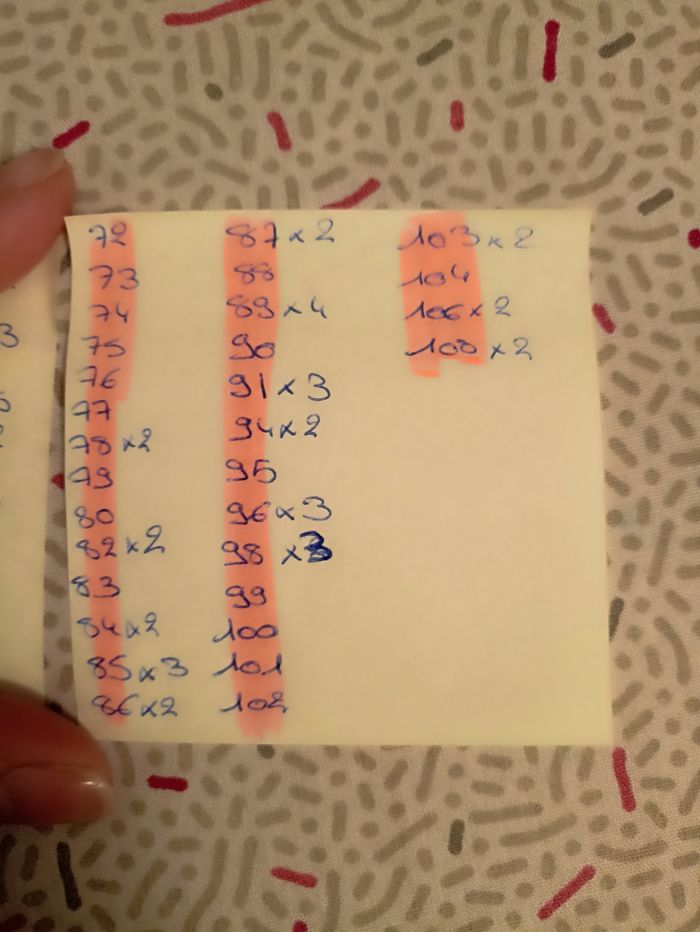 72
73
74
75
76
77
78 x2
79
80
82 x2
83
84 x2
85 x 3
86 x2
87 x 2
88
89 x 4
90
91 x 3
94 x 2
95
96 x 3
98 x 3
99
100
101
102
103 x 2
104
106 x 2
108 x 2